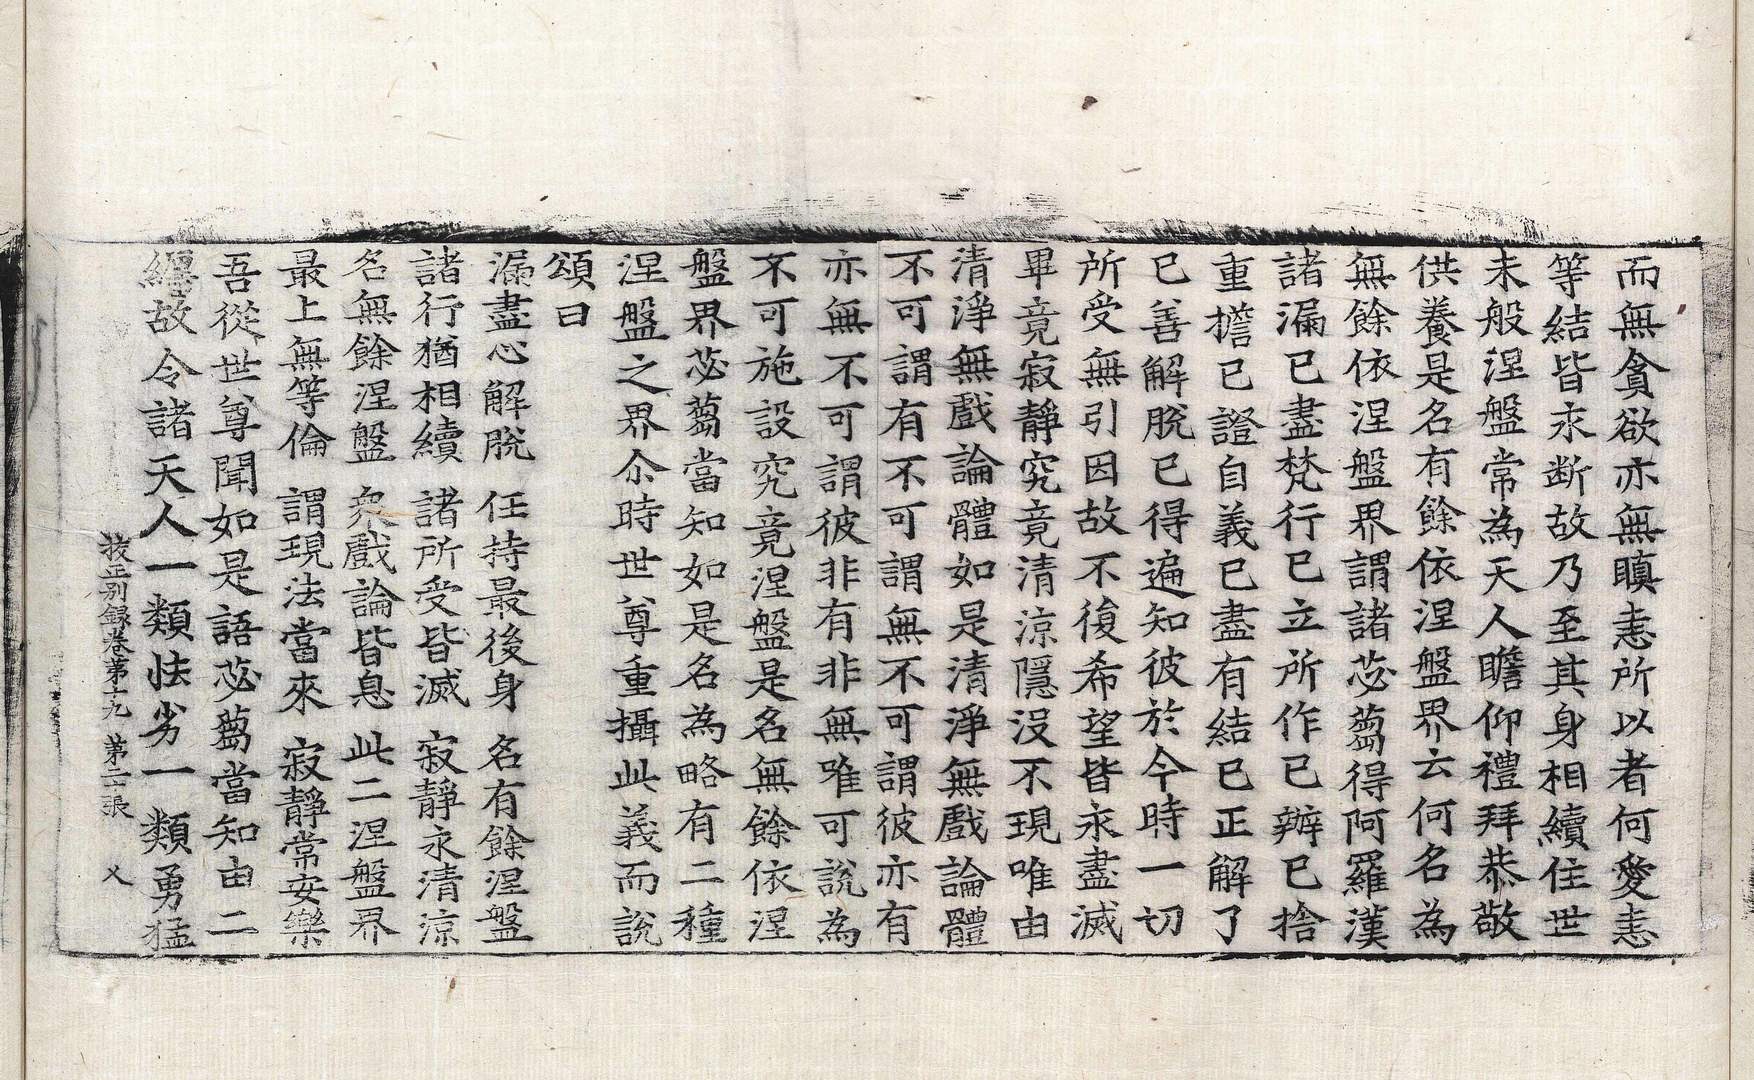 而無貪欲亦無瞋恚所以者何愛恚
等結皆永断故乃至其身相續住世
未般涅盤常為天人瞻仰禮拜恭敬
供養是名有餘依涅盤界云何名為
無餘依涅盤界謂諸苾蒭得阿羅漢
諸漏已盡梵行已立所作已辦已捨
重擔已證自義已盡有結已正解了
已善解脫已得遍知彼於今時一切
所受無引因故不復希望皆永盡滅
畢竟寂靜究竟清涼隱没不現唯由
清淨無戲論體如是清淨無戲論體
不可謂有不可謂無不可謂彼亦有
亦無不可謂彼非有非無唯可說為
不可施設究竟涅盤是名無餘依涅
盤界苾蒭當知如是名為略有二種
涅盤之界尒時世尊重攝此義而說
頌曰
漏盡心解脫 任持最後身 名有餘涅盤
諸行猶相續 諸所受皆滅 寂靜永清涼
名無餘涅盤 衆戲論皆息 此二涅盤界
最上無等倫 謂現法當來 寂靜常安樂
吾從世尊聞如是語苾蒭當知由二
纏故令諸天人一類怯劣一類勇猛
挍正别録卷第十九 第二張 㐅